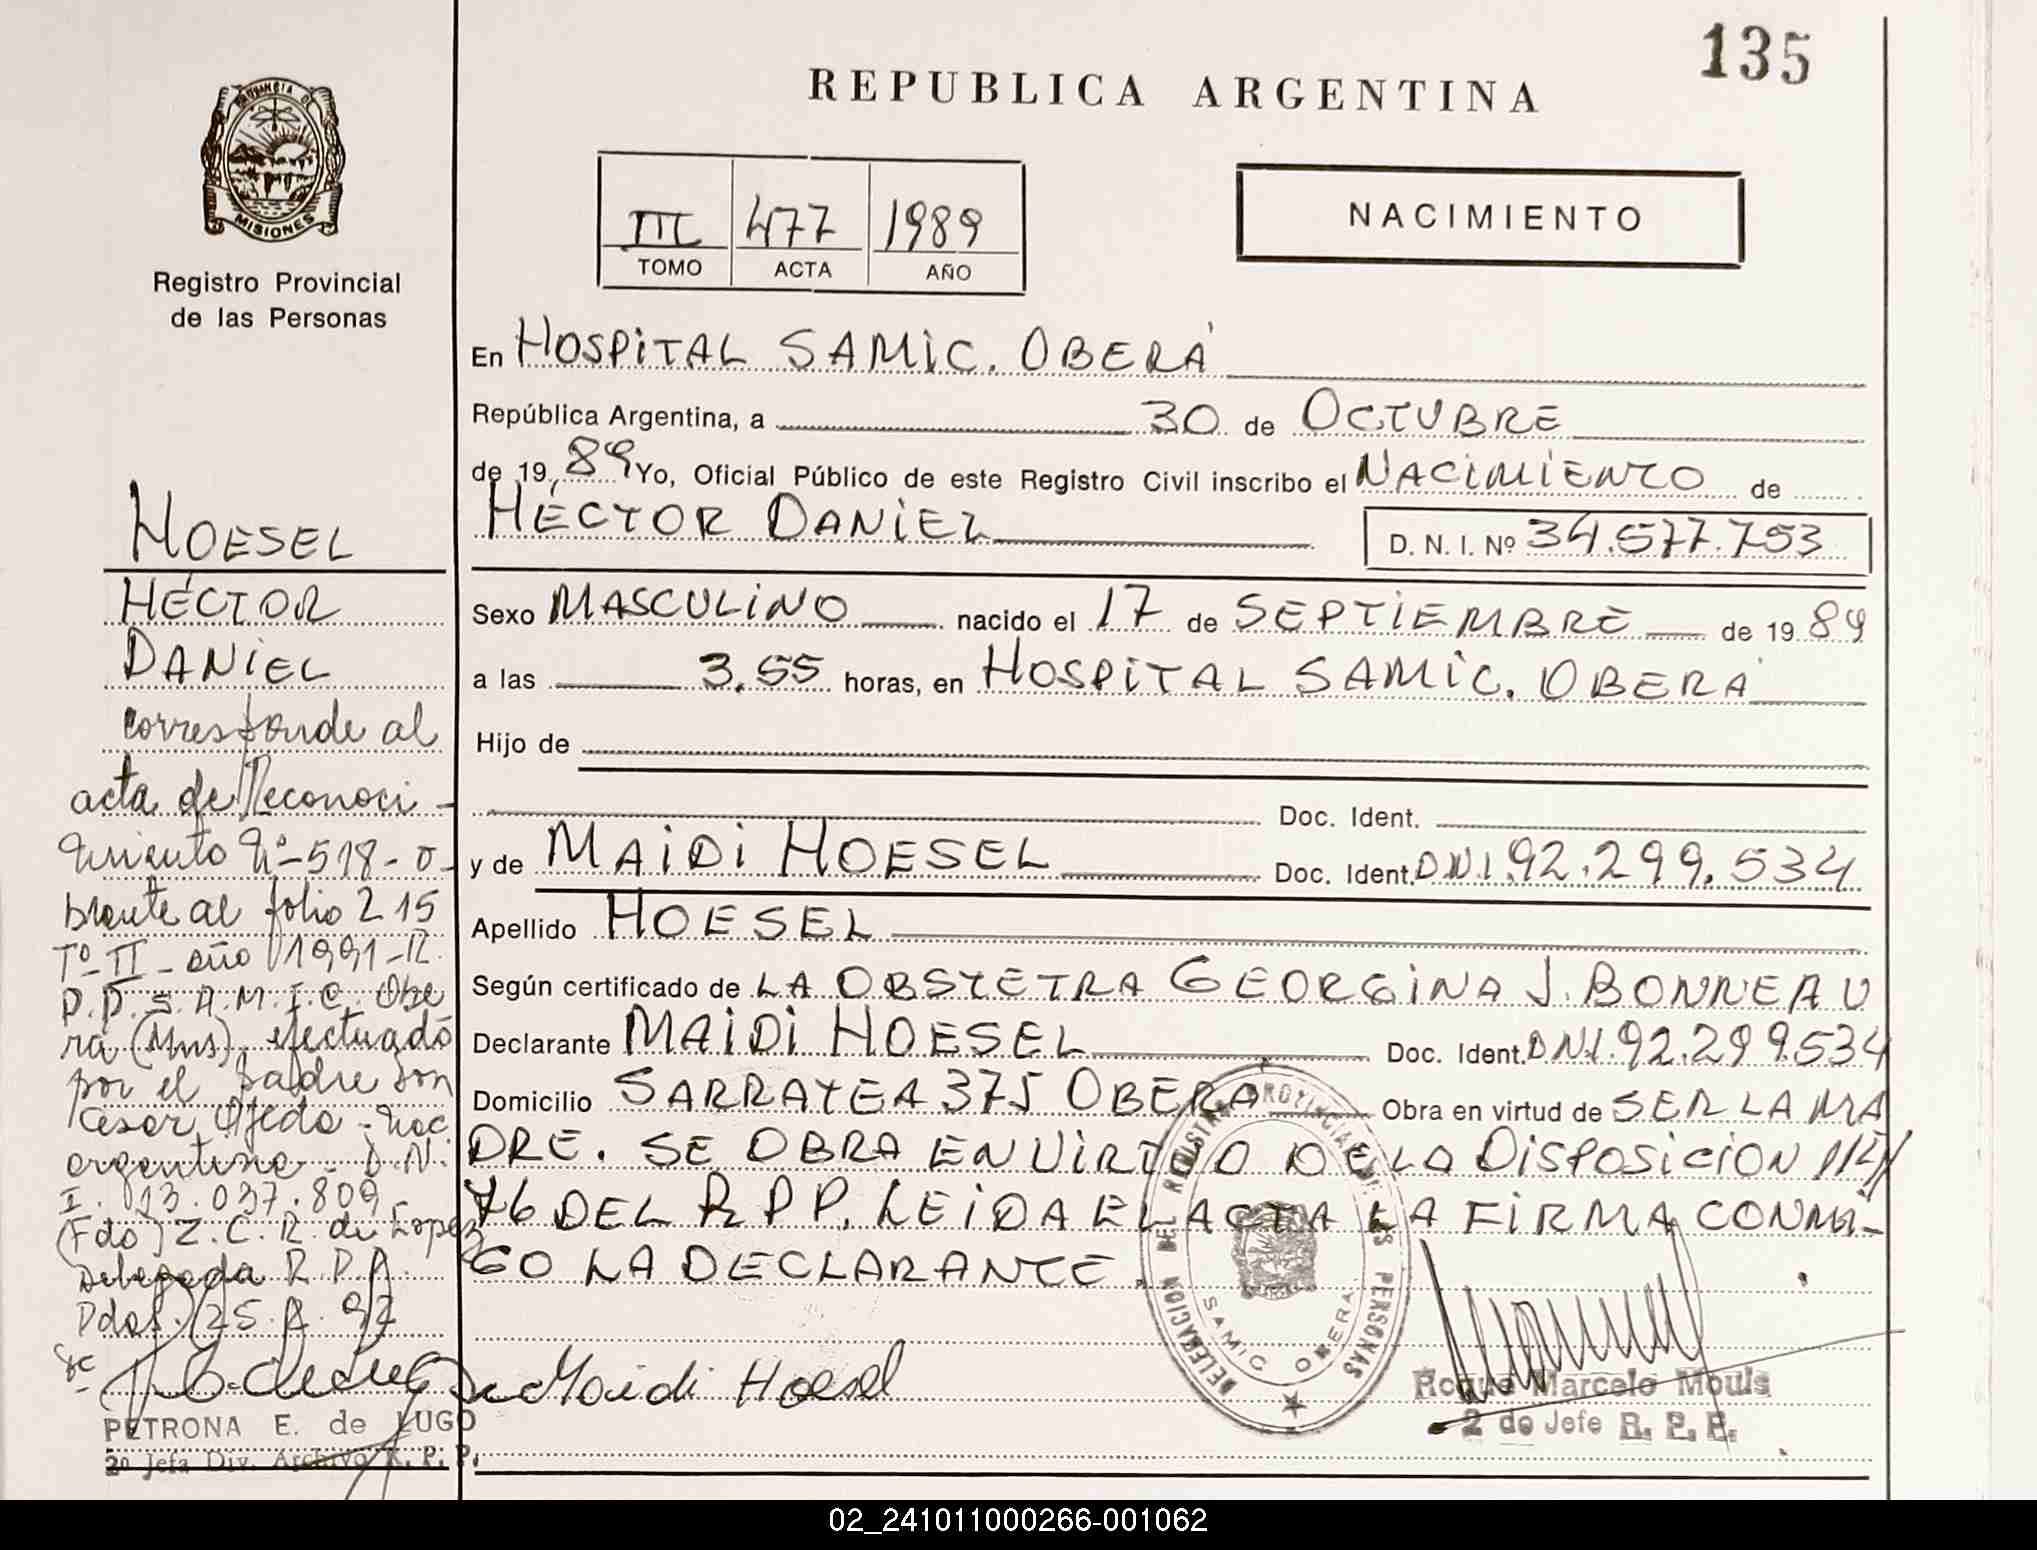 135
REPUBLICA ARGENTINA
PROVINCIA DE
MISIONES
Registro Provincial
de las Personas
III 477 1989
TOMO ACTA AÑO
NACIMIENTO
En HOSPITAL SAMIC. OBERÁ
República Argentina, a 30 de OCTUBRE
de 19 89 Yo, Oficial Público de este Registro Civil inscribo el NACIMIENTO de
HÉCTOR DANIEL D. N. I. Nº 34.577.753
Sexo MASCULINO nacido el 17 de SEPTIEMBRE de 19 89
a las 3.55 horas, en HOSPITAL SAMIC. OBERÁ
Hijo de
Doc. Ident.
y de MAIDI HOESEL Doc. Ident. DNI.92.299.534
Apellido HOESEL
Según certificado de LA OBSTETRA GEORGINA J. BONNEAU
Declarante MAIDI HOESEL Doc. Ident. DNI.92.299.534
Domicilio SARRATEA 375 OBERÁ Obra en virtud de SER LA MA
DRE. SE OBRA EN VIRTUD DE LA DISPOSICION 114/
76 DEL R.P.P. LEIDA EL ACTA LA FIRMA CONMI-
GO LA DECLARANTE.
Maidi Hoesel
DELEGACION DEL REGISTRO PROVINCIAL DE LAS PERSONAS
SAMIC OBERA
Roque Marcelo Mouls
2do Jefe R. P. P.
HOESEL
HÉCTOR
DANIEL
corresponde al
acta de Reconoci-
miento Nº-518-o-
brante al folio 215
Tº-II-año 1991-R.
P.P.S.A.M.I.C. Obe
rá (Mns) efectuado
por el padre don
César Ojeda-nac.
argentino-D.N.
I. 013.037.809-
(Fdo) Z.C.R. de Lopez
Delegada R.P.P.
Pdas. 25.A.92
PETRONA E. de LUGO
2ª Jefa Div. Archivo R. P. P.
02_241011000266-001062